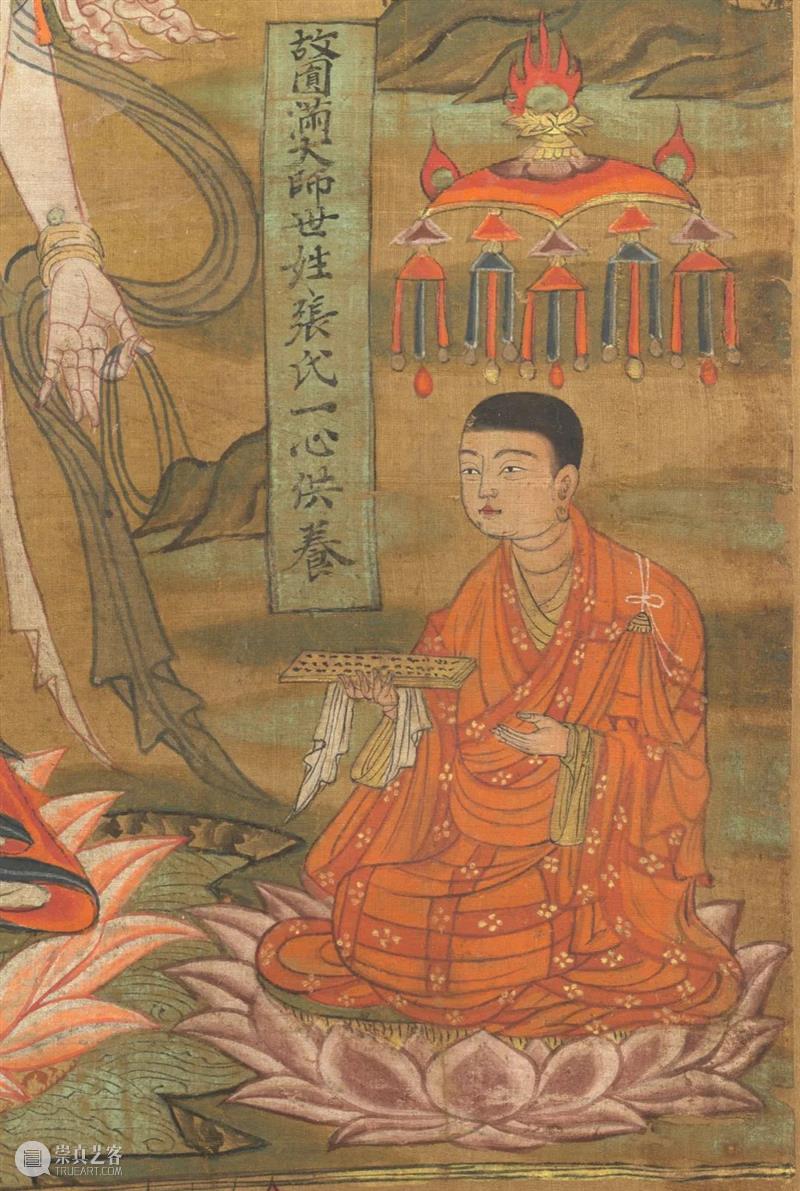 故圓滿大師世姓張氏一心供養
崇真艺客
TRUEART.COM